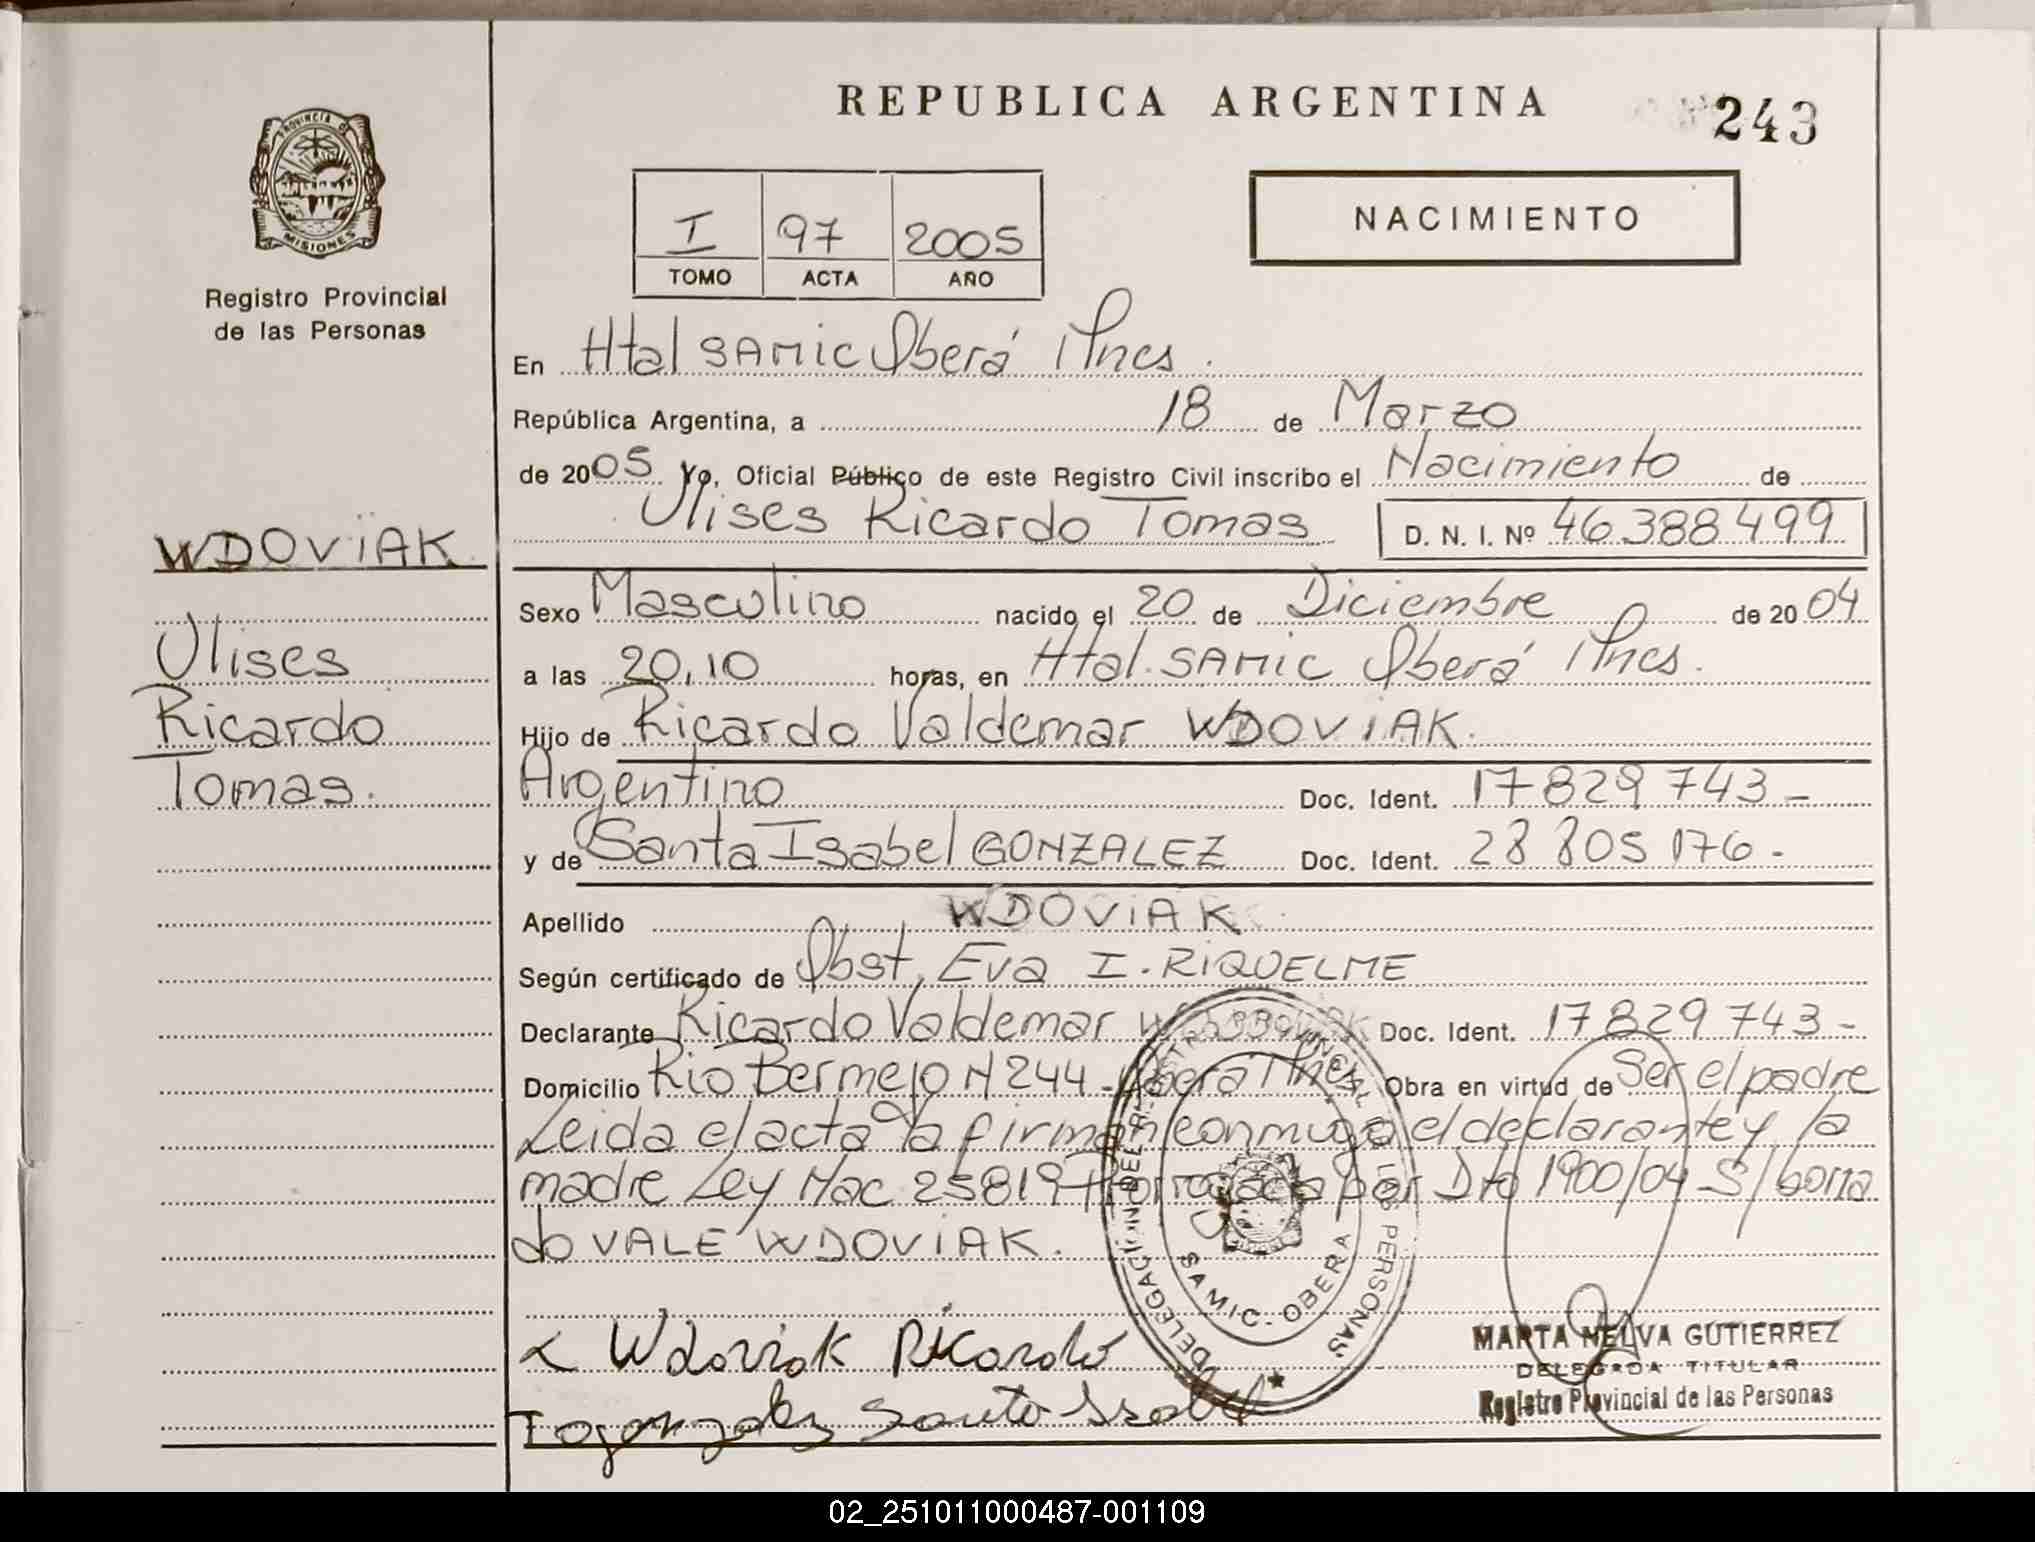 REPUBLICA ARGENTINA
243
PROVINCIA DE
MISIONES
Registro Provincial
de las Personas
I 97 2005
TOMO ACTA AÑO
NACIMIENTO
En Htal SAMIC Oberá Mnes.
República Argentina, a 18 de Marzo
de 2005 Yo, Oficial Público de este Registro Civil inscribo el Nacimiento de
Ulises Ricardo Tomas D. N. I. Nº 46.388.499
WDOVIAK
Ulises
Ricardo
Tomas.
Sexo Masculino nacido el 20 de Diciembre de 2004
a las 20,10 horas, en Htal. SAMIC Oberá Mnes.
Hijo de Ricardo Valdemar WDOVIAK.
Argentino Doc. Ident. 17829743-
y de Santa Isabel GONZALEZ Doc. Ident. 28 805 176-
Apellido WDOVIAK
Según certificado de Obst. Eva I. RIQUELME
Declarante Ricardo Valdemar WDOVIAK Doc. Ident. 17829 743-
Domicilio Rio Bermejo N 244-Oberá Mnes Obra en virtud de Ser el padre
Leida el acta la firman conmigo el declarante y la
madre Ley Nac 25819 Prorrogada por Dto 1900/04 S/borra
do VALE WDOVIAK.
DELEGACION DEL REGISTRO PROVINCIAL DE LAS PERSONAS
SAMIC - OBERA
Wdoviak Ricardo
MARTA NELVA GUTIERREZ
DELEGADA TITULAR
Registro Provincial de las Personas
gonzalez Santa Isabel
02_251011000487-001109